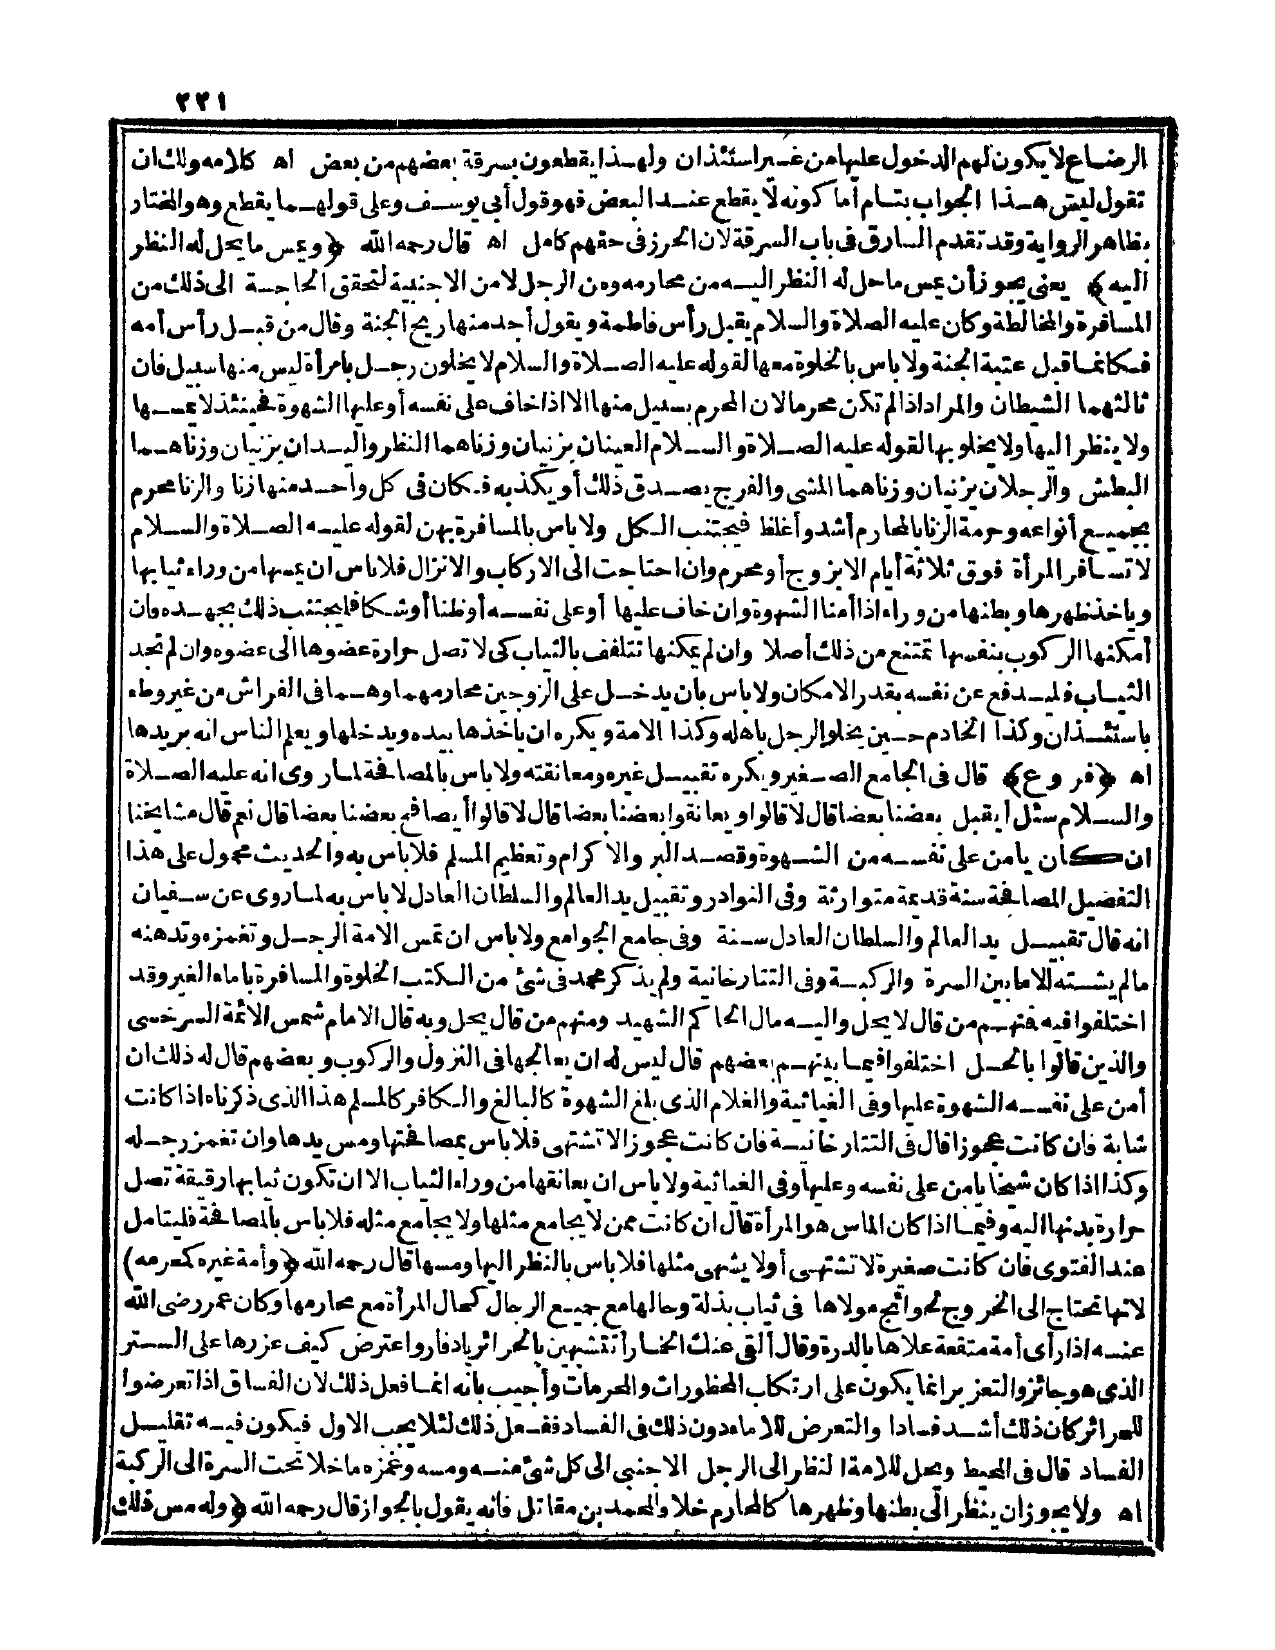 ٢٢١
الرضاع لا يكون لهم الدخول عليها من غير استئذان ولهذا يقطعون بسرقة بعضهم من بعض اه كلامه ولك ان
تقول ليس هذا الجواب بتام أما كونه لا يقطع عند البعض فهو قول أبى يوسف وعلى قولهما يقطع وهو المختار
بظاهر الرواية وقد تقدم السارق فى باب السرقة لان الحرز فى حقهم كامل اه قال رحمه الله ﴿ويمس ما يحل له النظر
اليه﴾ يعنى يجوز أن يمس ما حل له النظر اليه من محارمه ومن الرجل لا من الاجنبية لتحقق الحاجة الى ذلك من
المسافرة والمخالطة وكان عليه الصلاة والسلام يقبل رأس فاطمة ويقول أجد منها ريح الجنة وقال من قبل رأس أمه
فكانما قبل عتبة الجنة ولا باس بالخلوة معها لقوله عليه الصلاة والسلام لا يخلون رجل بامرأة ليس منها سبيل فان
ثالثهما الشيطان والمراد اذا لم تكن محرما لان المحرم بسبيل منها الا اذا خاف على نفسه أو عليها الشهوة فحينئذ لا يمسها
ولا ينظر اليها ولا يخلو بها لقوله عليه الصلاة والسلام العينان يزنيان وزناهما النظر واليدان يزنيان وزناهما
البطش والرجلان يزنيان وزناهما المشى والفرج يصدق ذلك أو يكذبه فكان فى كل واحد منها زنا والزنا محرم
بجميع أنواعه وحرمة الزنا بالمحارم أشد وأغلظ فيجتنب الكل ولا باس بالمسافرة بهن لقوله عليه الصلاة والسلام
لا تسافر المرأة فوق ثلاثة أيام الا بزوج أو محرم وان احتاجت الى الاركاب والانزال فلا باس ان يمسها من وراء ثيابها
وياخذ ظهرها وبطنها من وراء اذا أمنا الشهوة وان خاف عليها أو على نفسه أو ظنا أو شكا فليجتنب ذلك بجهده وان
أمكنها الركوب بنفسها تمتنع من ذلك أصلا وان لم يمكنها تتلفف بالثياب كى لا تصل حرارة عضوها الى عضوه وان لم تجد
الثياب فليدفع عن نفسه بقدر الامكان ولا باس بان يدخل على الزوجين محارمهما وهما فى الفراش من غير وطء
باستئذان وكذا الخادم حين يخلو الرجل باهله وكذا الامة ويكره ان ياخذها بيده ويدخلها ويعلم الناس انه يريدها
اه ﴿فروع﴾ قال فى الجامع الصغير ويكره تقبيل غيره ومعانقته ولا باس بالمصافحة لما روى انه عليه الصلاة
والسلام سئل أيقبل بعضنا بعضا قال لا قالوا ويعانقوا بعضنا بعضا قال لا قالوا أيصافح بعضنا بعضا قال نعم قال مشايخنا
ان كان يامن على نفسه من الشهوة وقصد البر والاكرام وتعظيم المسلم فلا باس به والحديث محمول على هذا
التفضيل المصافحة سنة قديمة متوارثة وفى النوادر وتقبيل يد العالم والسلطان العادل لا باس به لما روى عن سفيان
انه قال تقبيل يد العالم والسلطان العادل سنة وفى جامع الجوامع ولا باس ان تمس الامة الرجل وتغمزه وتدهنه
مالم يشته الا ما بين السرة والركبة وفى التتارخانية ولم يذكر محمد فى شئ من الكتب الخلوة والمسافرة باماء الغير وقد
اختلفوا فيه فمنهم من قال لا يحل واليه مال الحاكم الشهيد ومنهم من قال يحل وبه قال الامام شمس الائمة السرخسى
والذين قالوا بالحل اختلفوا فيما بينهم بعضهم قال ليس له ان يعالجها فى النزول والركوب وبعضهم قال له ذلك ان
أمن على نفسه الشهوة عليها وفى الغياثية والغلام الذى بلغ الشهوة كالبالغ والكافر كالمسلم هذا الذى ذكرناه اذا كانت
شابة فان كانت عجوزا قال فى التتارخانية فان كانت عجوزا لا تشتهى فلا باس بمصافحتها ومس يدها وان تغمز رجله
وكذا اذا كان شيخا يامن على نفسه وعليها وفى الغياثية ولا باس ان يعانقها من وراء الثياب الا ان تكون ثيابها رقيقة تصل
حرارة بدنها اليه وفيما اذا كان الماس هو المرأة قال ان كانت ممن لا يجامع مثلها ولا يجامع مثله فلا باس بالمصافحة فليتامل
عند الفتوى فان كانت صغيرة لا تشتهى أو لا يشتهى مثلها فلا باس بالنظر اليها ومسها قال رحمه الله ﴿وأمة غيره كمحرمه)
لانها تحتاج الى الخروج لحوائج مولاها فى ثياب بذلة وحالها مع جميع الرجال كحال المرأة مع محارمها وكان عمر رضى الله
عنه اذا رأى أمة متقنعة علاها بالدرة وقال ألقى عنك الخمار أتتشبهين بالحرائر يا دفار واعترض كيف عزرها على الستر
الذى هو جائز والتعزير انما يكون على ارتكاب المحظورات والمحرمات وأجيب بانه انما فعل ذلك لان الفساق اذا تعرضوا
للحرائر كان ذلك أشد فسادا والتعرض للاماء دون ذلك فى الفساد ففعل ذلك لئلا يجب الاول فيكون فيه تقليل
الفساد قال فى المحيط ويحل للامة النظر الى الرجل الاجنبى الى كل شئ منه ومسه وغمزه ما خلا تحت السرة الى الركبة
اه ولا يجوز ان ينظر الى بطنها وظهرها كالمحارم خلافا لمحمد بن مقاتل فانه يقول بالجواز قال رحمه الله ﴿وله مس ذلك